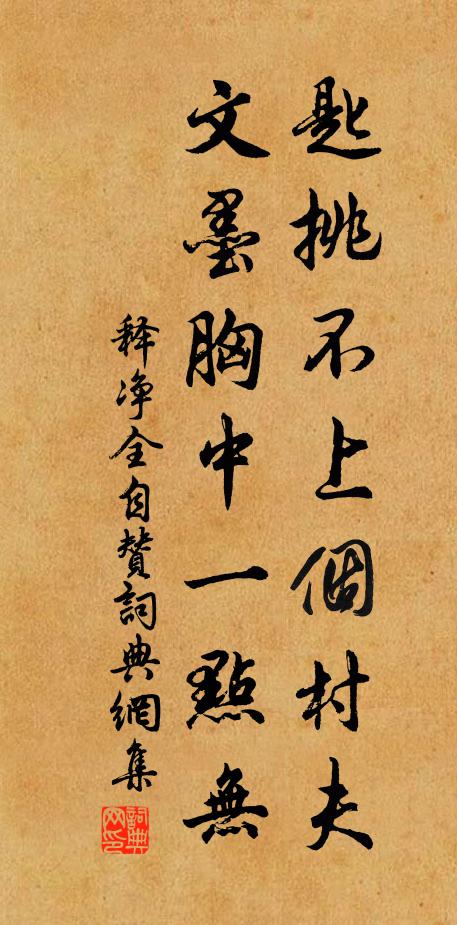 匙挑不上個村夫
文墨胸中一點無
释净全自赞詞典網集
詞典网印